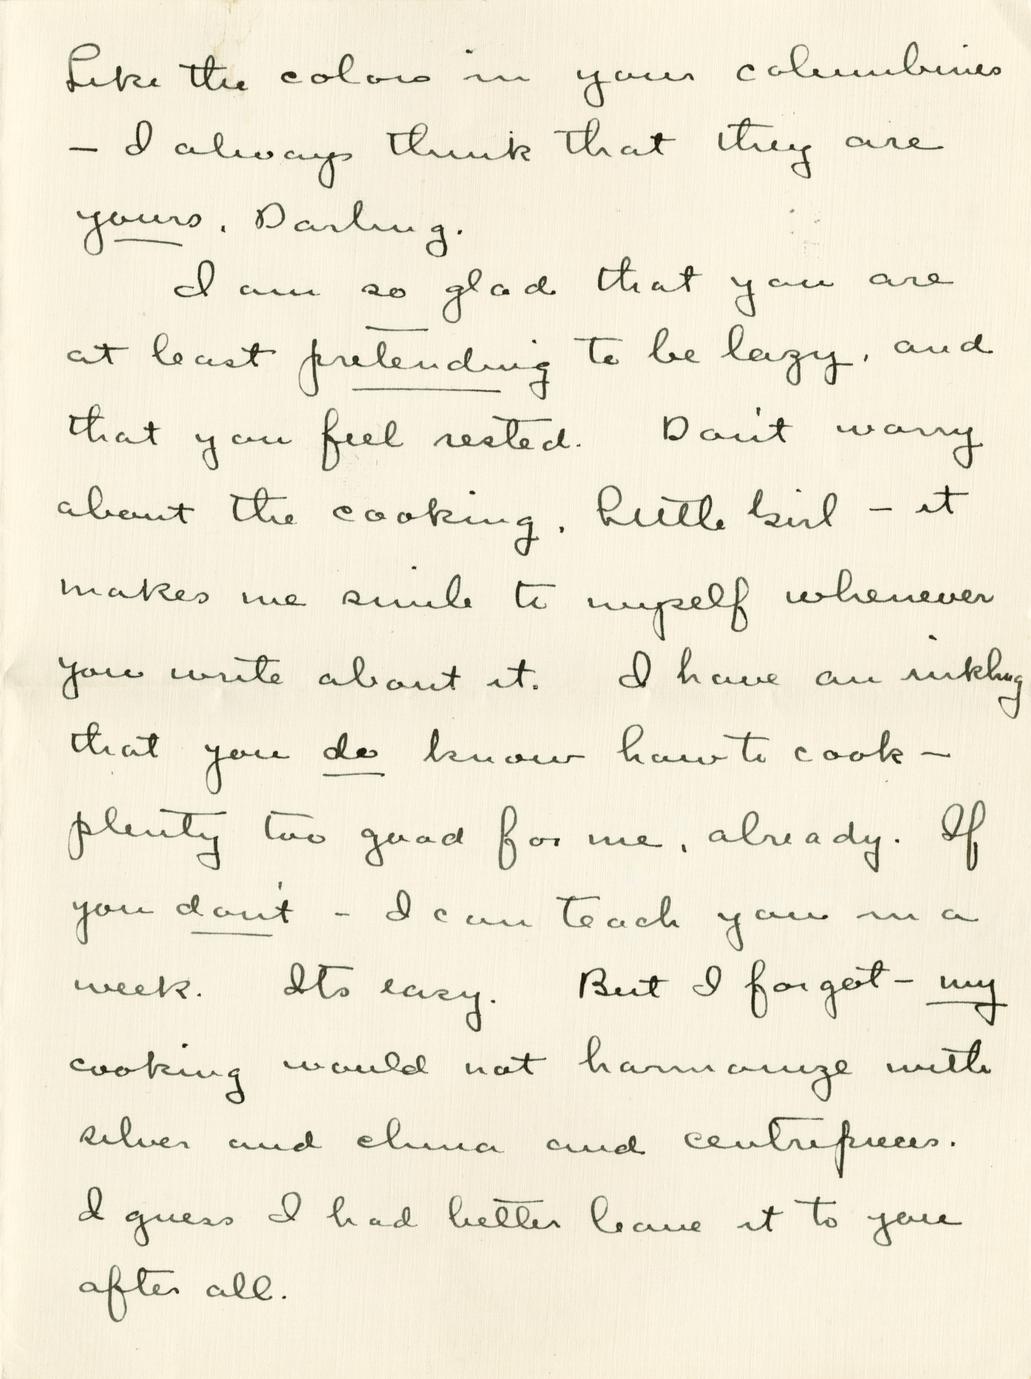 Like the colors in your columbines
– I always think that they are
yours, Darling.
I am so glad that you are
at least pretending to be lazy, and
that you feel rested. Don't worry
about the cooking, Little Girl – it
makes me smile to myself whenever
you write about it. I have an inkling
that you do know how to cook –
plenty too good for me, already. If
you don't – I can teach you in a
week. Its easy. But I forgot – my
cooking would not harmonize with
silver and china and centrepieces.
I guess I had better leave it to you
after all.